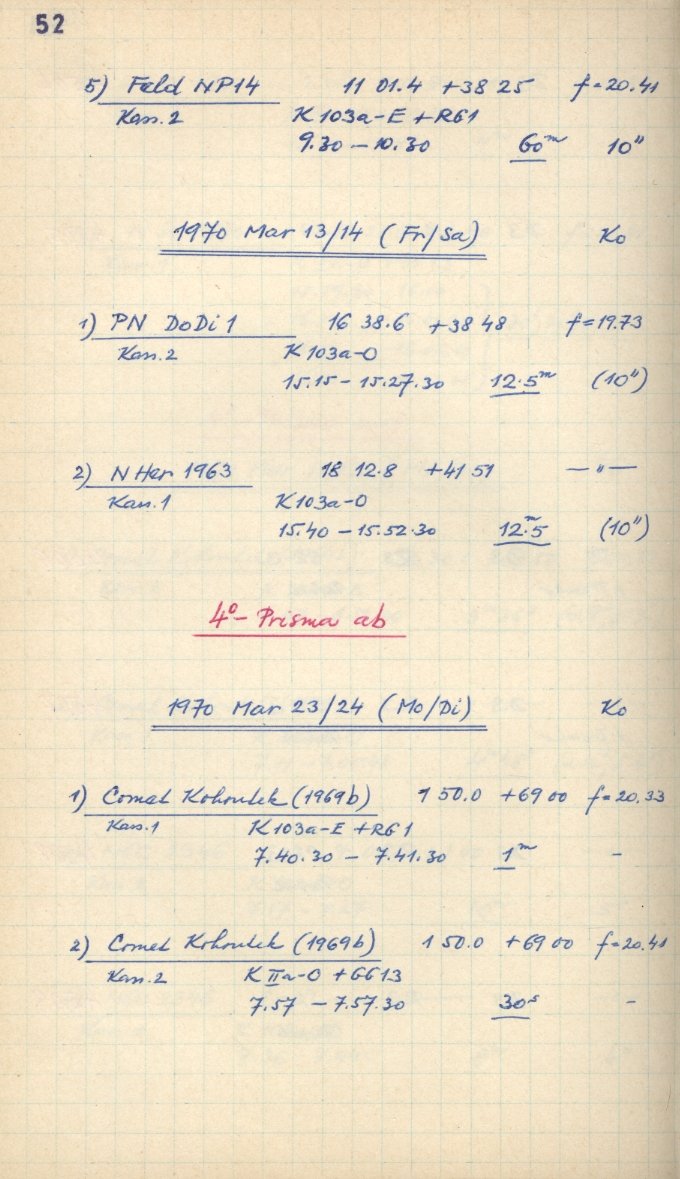 52
5) Feld NP14 11 01.4 +38 25 f=20.41
Kass.2 K 103a-E + RG1
9.30 - 10.30 60ᵐ 10"
1970 Mar 13/14 (Fr/Sa) Ko
1) PN DoDi 1 16 38.6 +38 48 f=19.73
Kass.2 K 103a-O
15.15 - 15.27.30 12.5ᵐ (10")
2) N Her 1963 18 12.8 +41 51 — " —
Kass.1 K 103a-O
15.40 - 15.52.30 12ᵐ.5 (10")
4° - Prisma ab
1970 Mar 23/24 (Mo/Di) Ko
1) Comet Kohoutek (1969b) 1 50.0 +69 00 f=20.33
Kass.1 K 103a-E + RG1
7.40.30 - 7.41.30 1ᵐ -
2) Comet Kohoutek (1969b) 1 50.0 +69 00 f=20.41
Kass.2 K IIa-O + GG13
7.57 - 7.57.30 30ˢ -